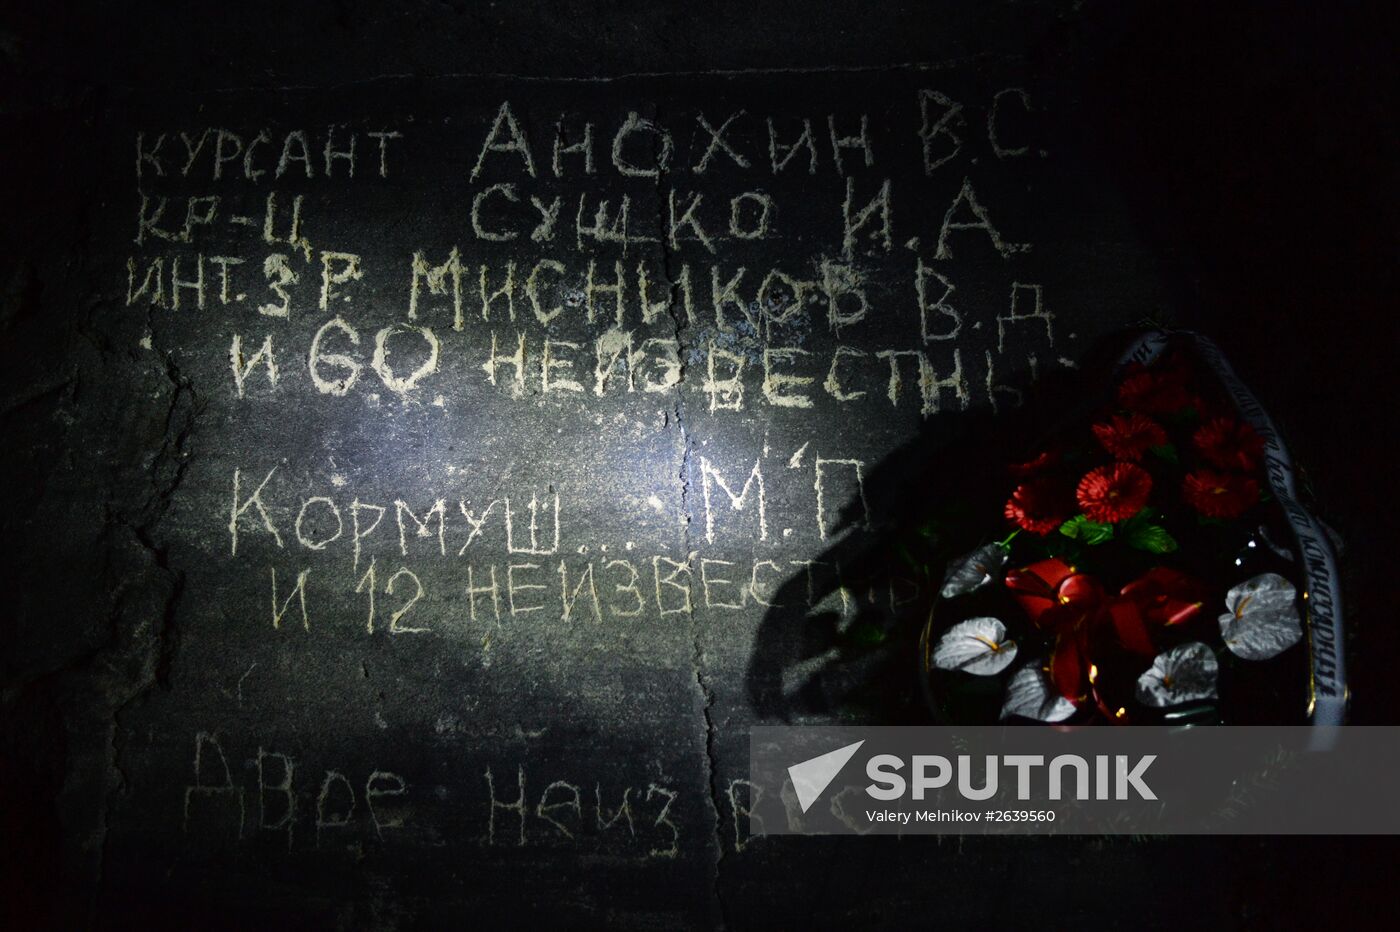 КУРСАНТ АНОХИН В.С.
КР-Ц СУШКО И.А.
ИНТ. 3 Р. МИСНИКОВ В.Д.
И 60 НЕИЗВЕСТНЫ
КОРМУШ... М.П
И 12 НЕИЗВЕСТНЫ
Двре Неизвест
SPUTNIK
Valery Melnikov #2639560